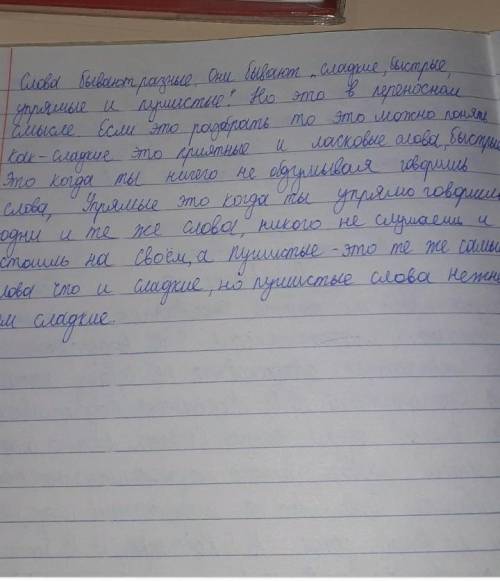 Слова бывают разные. Они бывают „сладкие, быстрые,
упрямые и пушистые". Но это в переносном
смысле Если это разобрать то это можно понять
как-сладкие это приятные и ласковые слова, быстры
Это когда ты ничего не обдумывая говоришь
слова, Упрямые это когда ты упрямо говориш
одни и те же слова, никого не слушаешь и
стоишь на своём, а пушистые-это те же самы
лова что и сладкие, но пушистые слова нежн
м сладкие.